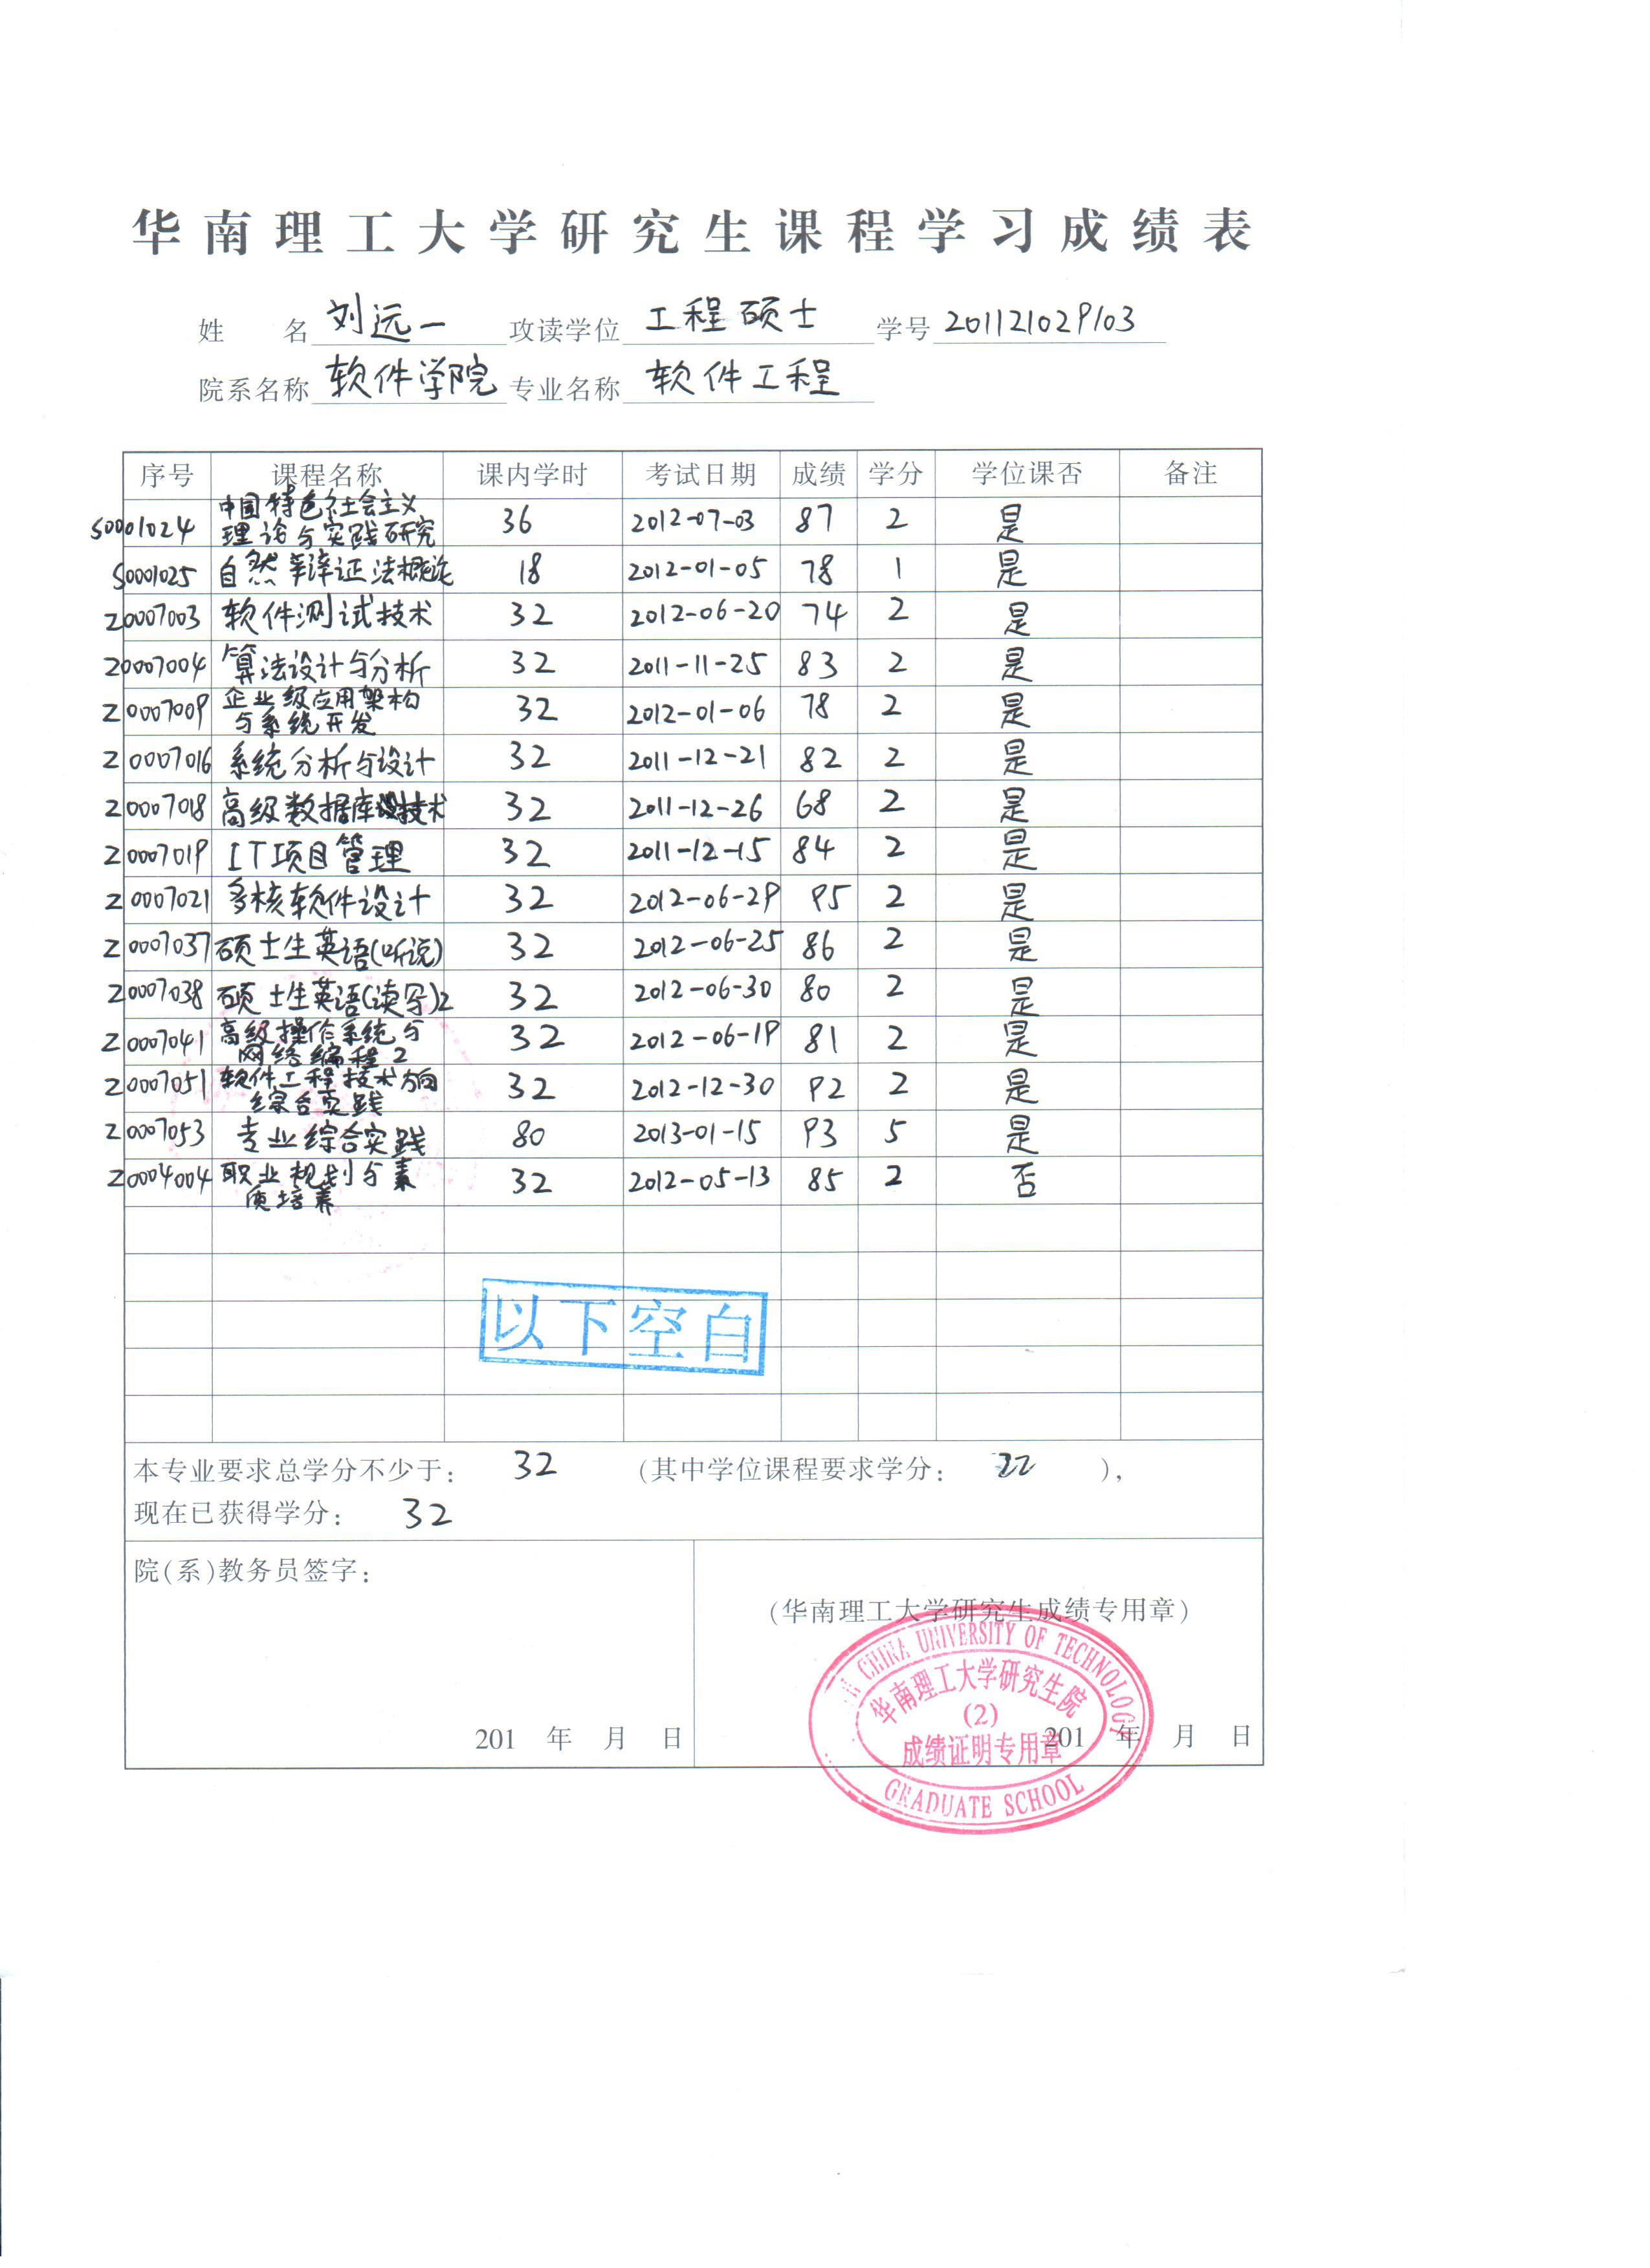 华南理工大学研究生课程学习成绩表
姓 名 刘远一 攻读学位 工程硕士 学号 201121029103
院系名称 软件学院 专业名称 软件工程
序号 课程名称 课内学时 考试日期 成绩 学分 学位课否 备注
S0001024 中国特色社会主义理论与实践研究 36 2012-07-03 87 2 是
S0001025 自然辩证法概论 18 2012-01-05 78 1 是
Z0007003 软件测试技术 32 2012-06-20 74 2 是
Z0007004 算法设计与分析 32 2011-11-25 83 2 是
Z0007009 企业级应用架构与系统开发 32 2012-01-06 78 2 是
Z0007016 系统分析与设计 32 2011-12-21 82 2 是
Z0007018 高级数据库技术 32 2011-12-26 68 2 是
Z0007019 IT项目管理 32 2011-12-15 84 2 是
Z0007021 多核软件设计 32 2012-06-29 95 2 是
Z0007037 硕士生英语(听说) 32 2012-06-25 86 2 是
Z0007038 硕士生英语(读写)2 32 2012-06-30 80 2 是
Z0007041 高级操作系统与网络编程2 32 2012-06-19 81 2 是
Z0007051 软件工程技术方向综合实践 32 2012-12-30 92 2 是
Z0007053 专业综合实践 80 2013-01-15 93 5 是
Z0004004 职业规划与素质培养 32 2012-05-13 85 2 否
以下空白
本专业要求总学分不少于: 32 (其中学位课程要求学分: 22 ),
现在已获得学分: 32
院(系)教务员签字:
(华南理工大学研究生成绩专用章)
CHINA UNIVERSITY OF TECHNOLOGY
华南理工大学研究生院
(2)
成绩证明专用章
GRADUATE SCHOOL
201 年 月 日 201 年 月 日